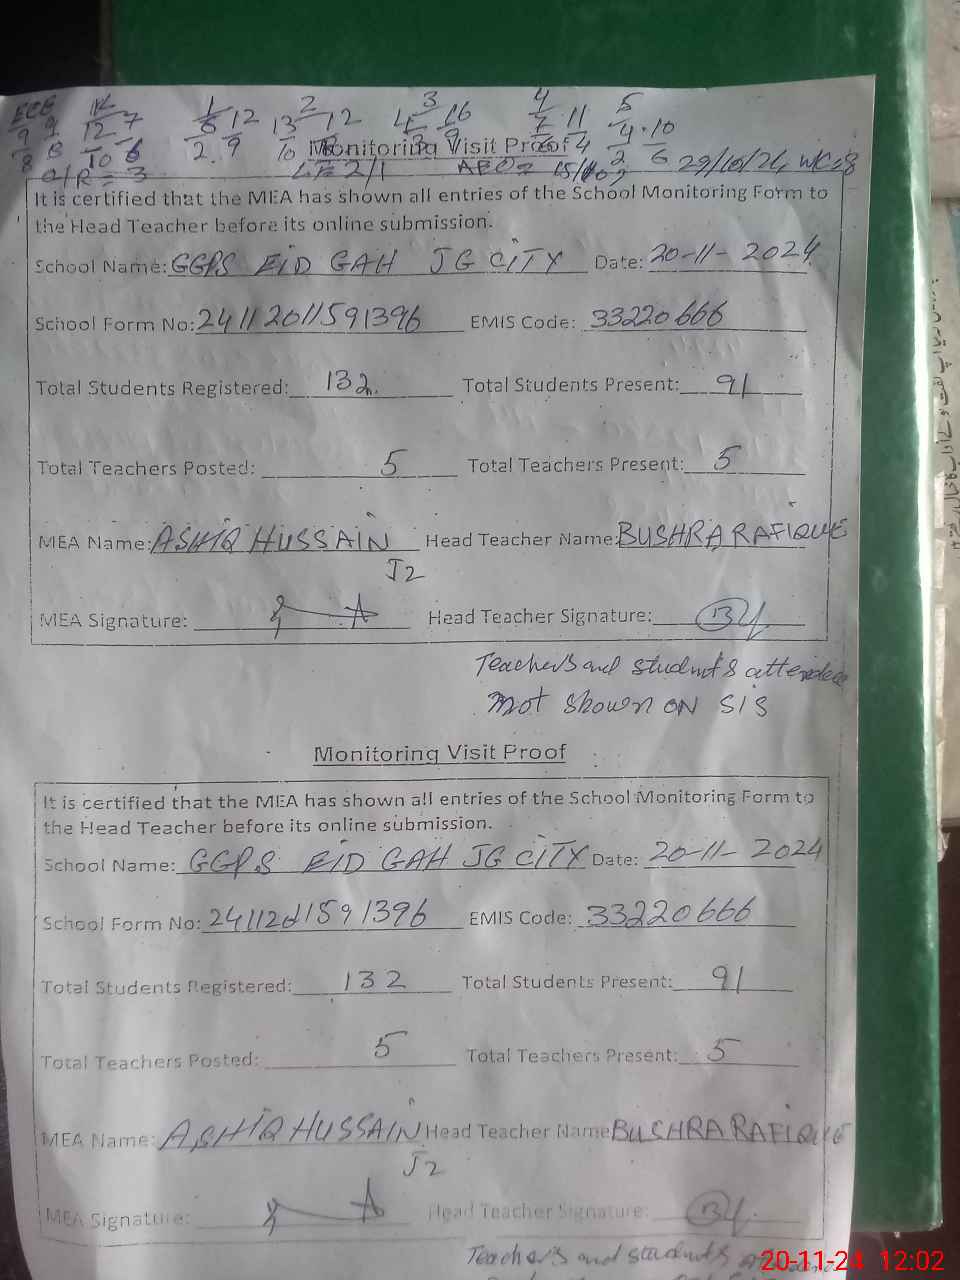 ECE
Monitoring Visit Proof
C/R = 3
29/10/24
It is certified that the MEA has shown all entries of the School Monitoring Form to
the Head Teacher before its online submission.
School Name: GGPS EID GAH JG CITY Date: 20-11-2024
School Form No: 24112011591396 EMIS Code: 33220666
Total Students Registered: 132 Total Students Present: 91
Total Teachers Posted: 5 Total Teachers Present: 5
MEA Name: ASHIQ HUSSAIN Head Teacher Name: BUSHRA RAFIQUE
J2
MEA Signature: Head Teacher Signature:
Teachers and students attendece
not shown ON SIS
Monitoring Visit Proof
It is certified that the MEA has shown all entries of the School Monitoring Form to
the Head Teacher before its online submission.
School Name: GGPS EID GAH JG CITY Date: 20-11-2024
School Form No: 24112011591396 EMIS Code: 33220666
Total Students Registered: 132 Total Students Present: 91
Total Teachers Posted: 5 Total Teachers Present: 5
MEA Name: ASHIQ HUSSAIN Head Teacher Name BUSHRA RAFIQUE
J2
MEA Signature: Head Teacher Signature:
Teachers and students
20-11-24 12:02